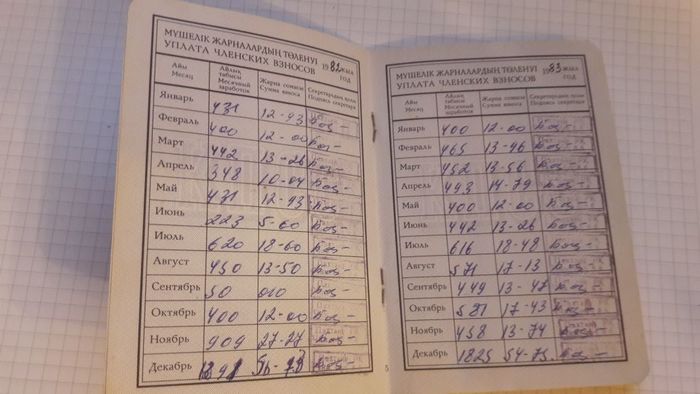 МҮШЕЛІК ЖАРНАЛАРДЫҢ ТӨЛЕНУІ 1982 ЖЫЛ
УПЛАТА ЧЛЕНСКИХ ВЗНОСОВ ГОД
Айы Айлық табысы Жарна сомасы Секретардың қолы
Месяц Месячный заработок Сумма взноса Подпись секретаря
Январь 431 12-93
Февраль 400 12-00
Март 442 13-26
Апрель 348 10-04
Май 431 12-93
Июнь 223 5-60
Июль 620 18-60
Август 450 13-50
Сентябрь 50 0-10
Октябрь 400 12-00
Ноябрь 909 27-27
Декабрь
5
МҮШЕЛІК ЖАРНАЛАРДЫҢ ТӨЛЕНУІ 1983 ЖЫЛ
УПЛАТА ЧЛЕНСКИХ ВЗНОСОВ ГОД
Айы Айлық табысы Жарна сомасы Секретардың қолы
Месяц Месячный заработок Сумма взноса Подпись секретаря
Январь 400 12-00
Февраль 465 13-96
Март 452 13-56
Апрель 493 14-79
Май 400 12-00
Июнь 442 13-26
Июль 616 18-48
Август 571 17-13
Сентябрь 449 13-47
Октябрь 581 17-43
Ноябрь 458 13-74
Декабрь 1825 54-75